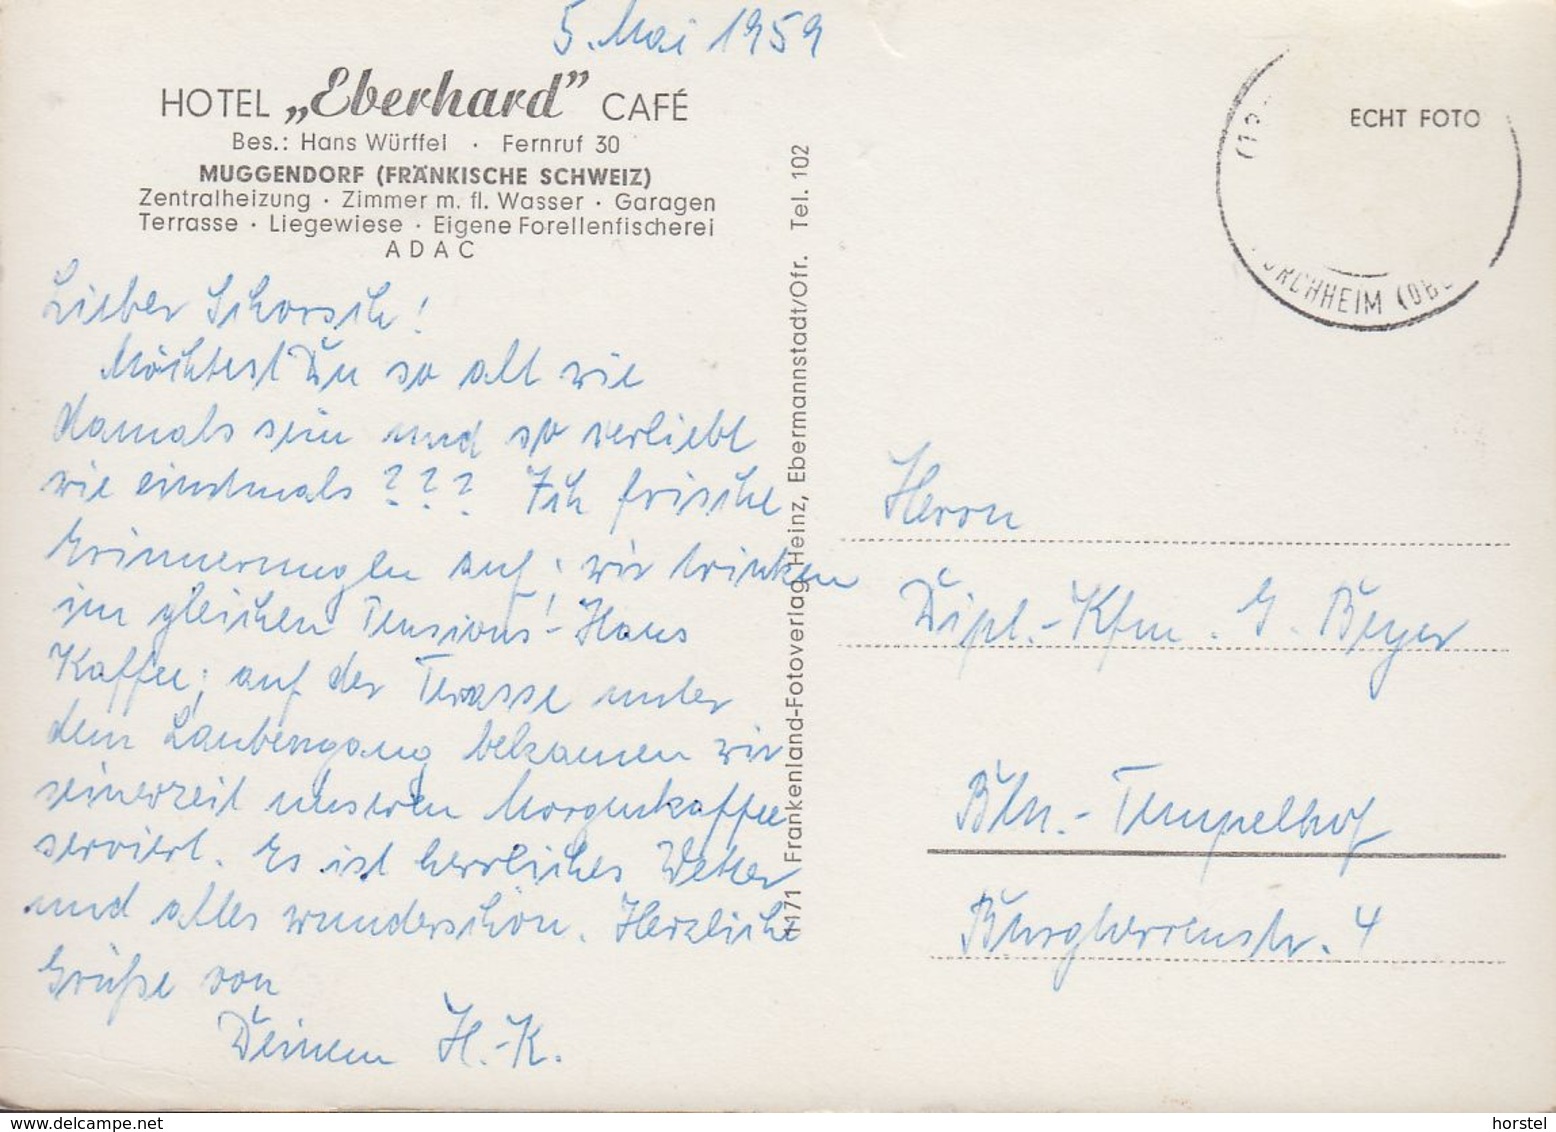 5. Mai 1959
HOTEL „Eberhard” CAFÉ
Bes.: Hans Würffel · Fernruf 30
MUGGENDORF (FRÄNKISCHE SCHWEIZ)
Zentralheizung · Zimmer m. fl. Wasser · Garagen
Terrasse · Liegewiese · Eigene Forellenfischerei
ADAC
Lieber Schorsch!
Möchtest Du so alt wie
damals sein und so verliebt
wie eindmals ??? Ich frische
Erinnerungen auf; wir trinken
im gleichen Pensions-Haus
Kaffee; auf der Terasse unter
dem Laubengang bekamen wir
seinerzeit unseren Morgenkaffee
serviert. Es ist herrliches Wetter
und alles wunderschön. Herzliche
Grüße von
Deinem H.-K.
1171 Frankenland-Fotoverlag Heinz, Ebermannstadt/Ofr. Tel. 102
ECHT FOTO
FORCHHEIM (OB
Herrn
Dipl.-Kfm. G. Beyer
Bln.-Tempelhof
Burgherrenstr. 4
www.delcampe.net
horstel